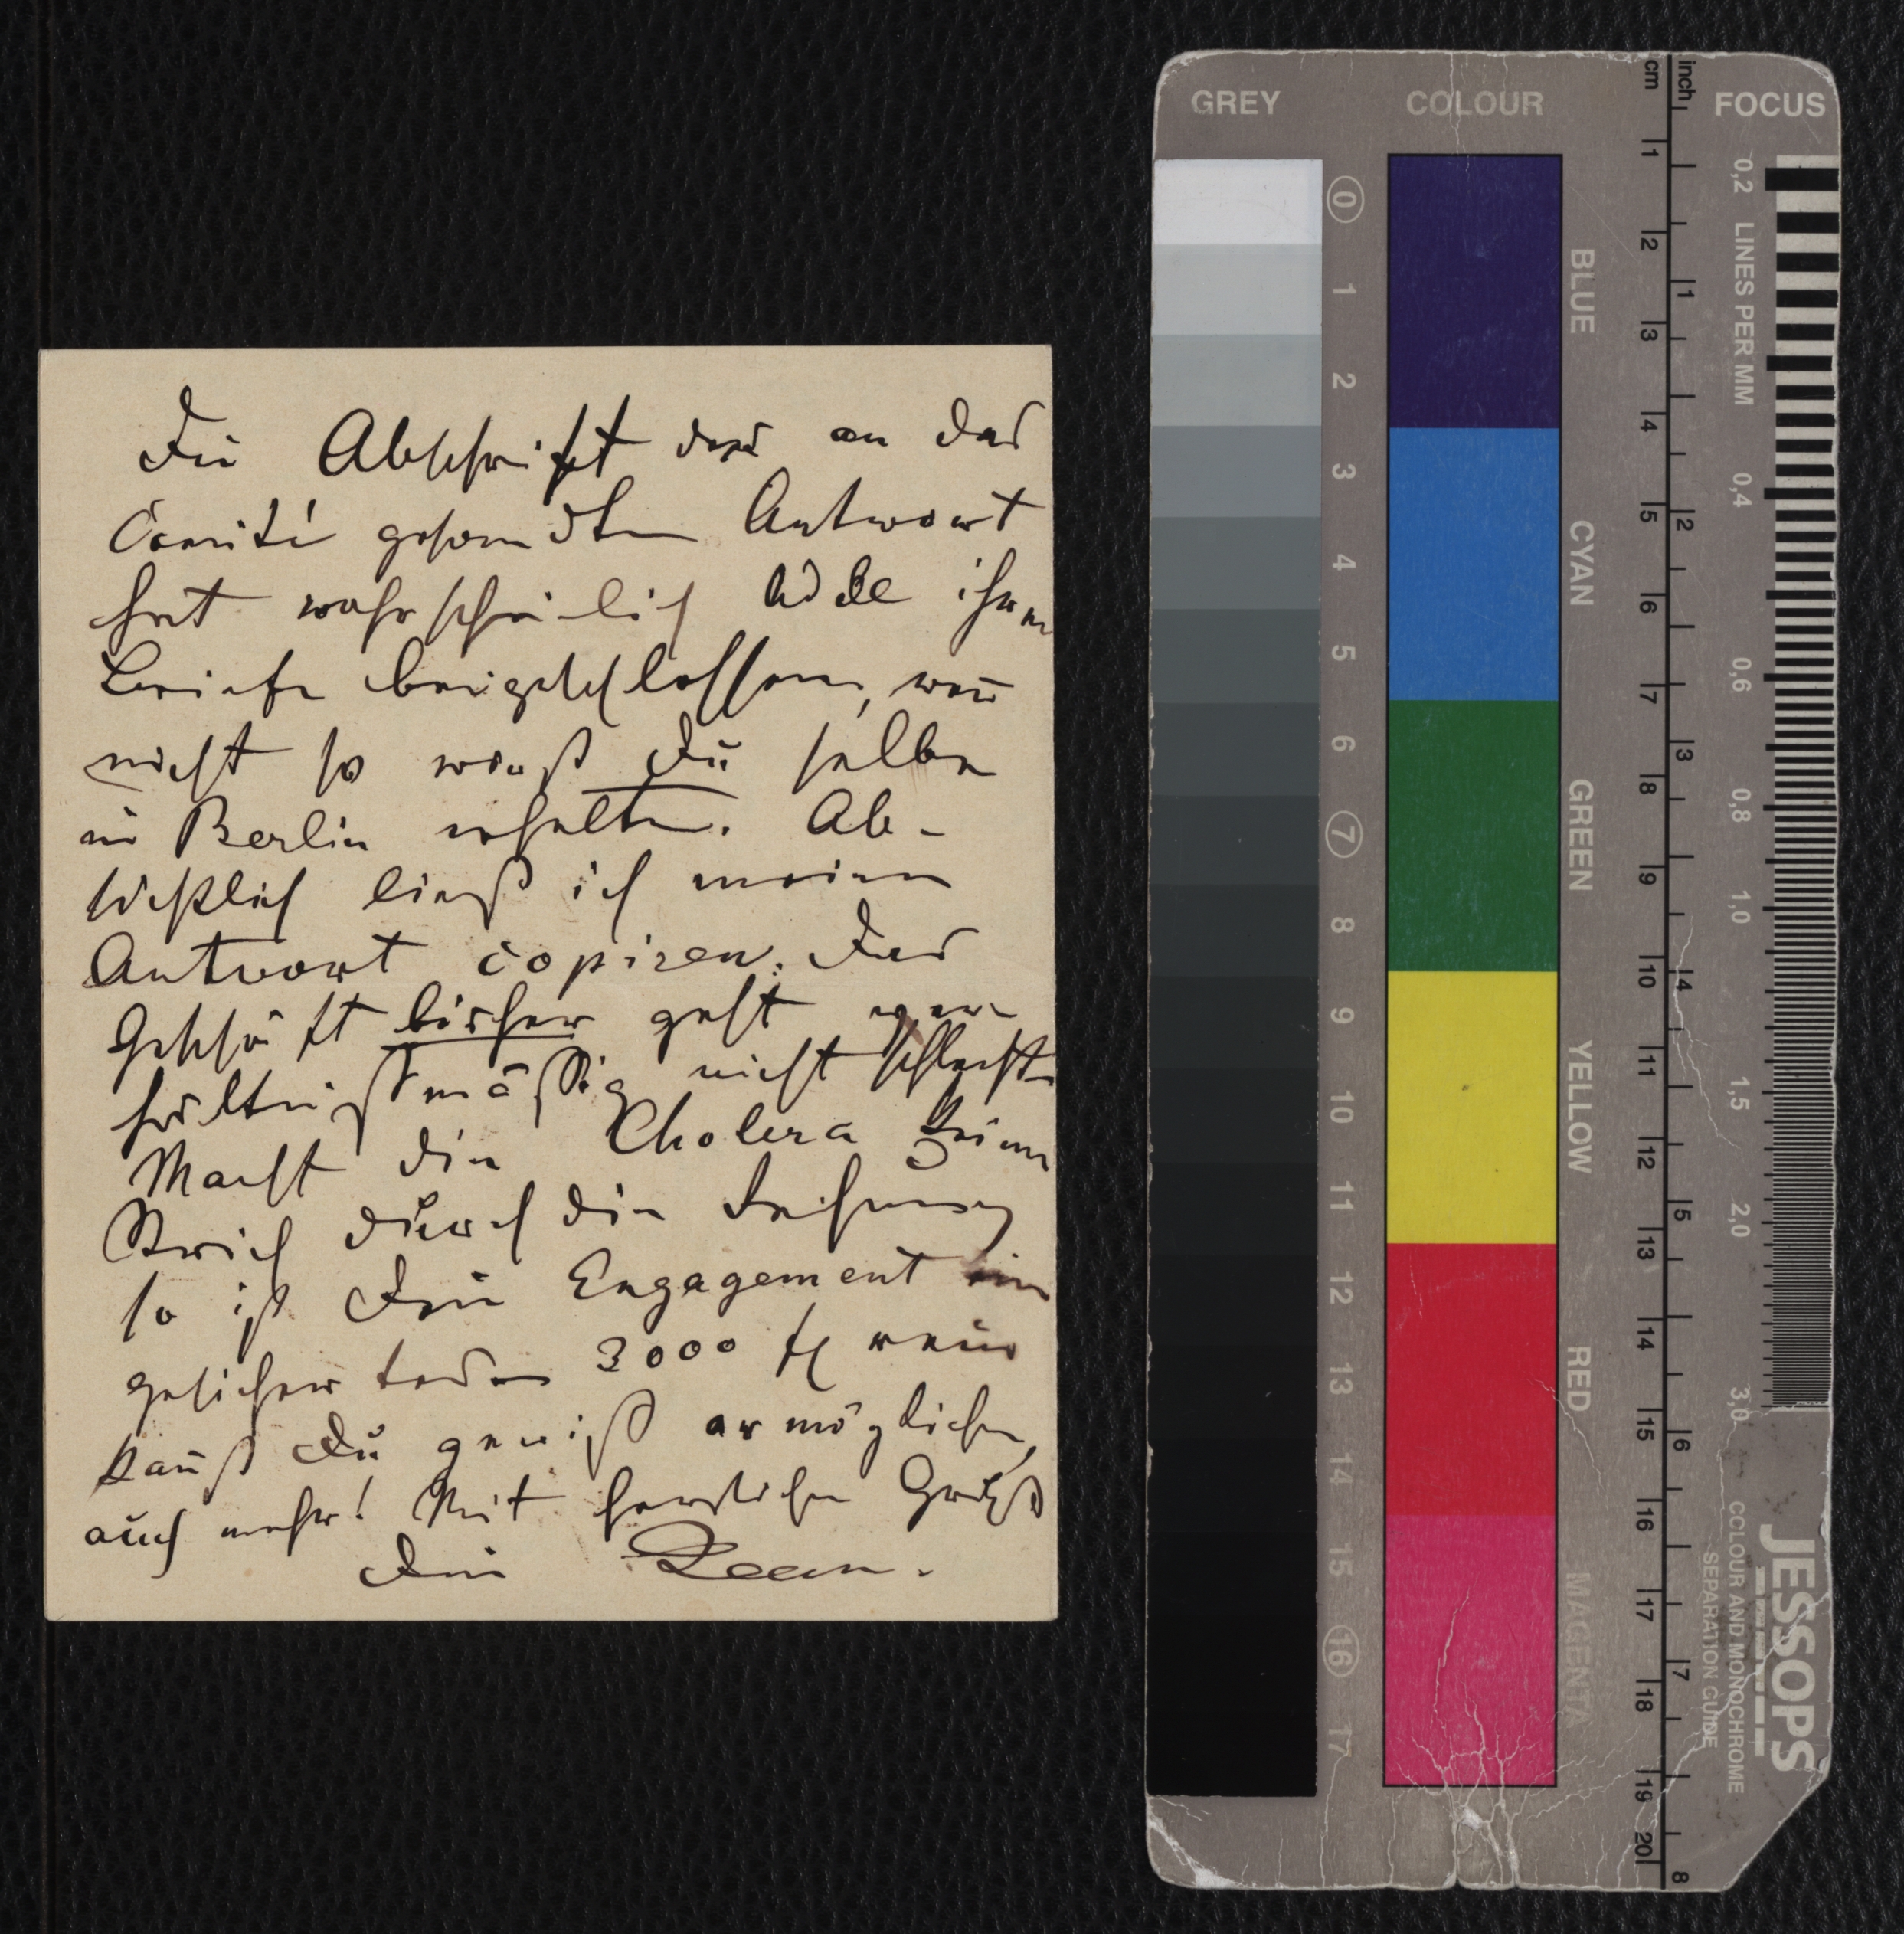 Die Abschrift der an das
Comité gesandten Antwort
hat wahrscheinlich Adele ihrem
Briefe beigeschlossen, wenn
nicht so wirst Du selbe
in Berlin erhalten. Ab-
sichtlich ließ ich meine
Antwort copiren. Das
Geschäft bisher geht ver-
hältnißmäßig nicht schlecht.
Macht die Cholera keinen
Strich durch die Rechnung
so ist Dein Engagement ein
gesichertes. 3000 fl rein
kannst Du gewiß ermöglichen,
auch mehr! Mit herzlichen Gruß
Dein
GREY
COLOUR
cm
inch
FOCUS
0 1 2 3 4 5 6 7 8 9 10 11 12 13 14 15 16 17
BLUE
CYAN
GREEN
YELLOW
RED
MAGENTA
1 2 3 4 5 6 7 8 9 10 11 12 13 14 15 16 17 18 19 20
1 2 3 4 5 6 7 8
0,2 LINES PER MM 0,4 0,6 0,8 1,0 1,5 2,0 3,0
JESSOPS
COLOUR AND MONOCHROME
SEPARATION GUIDE